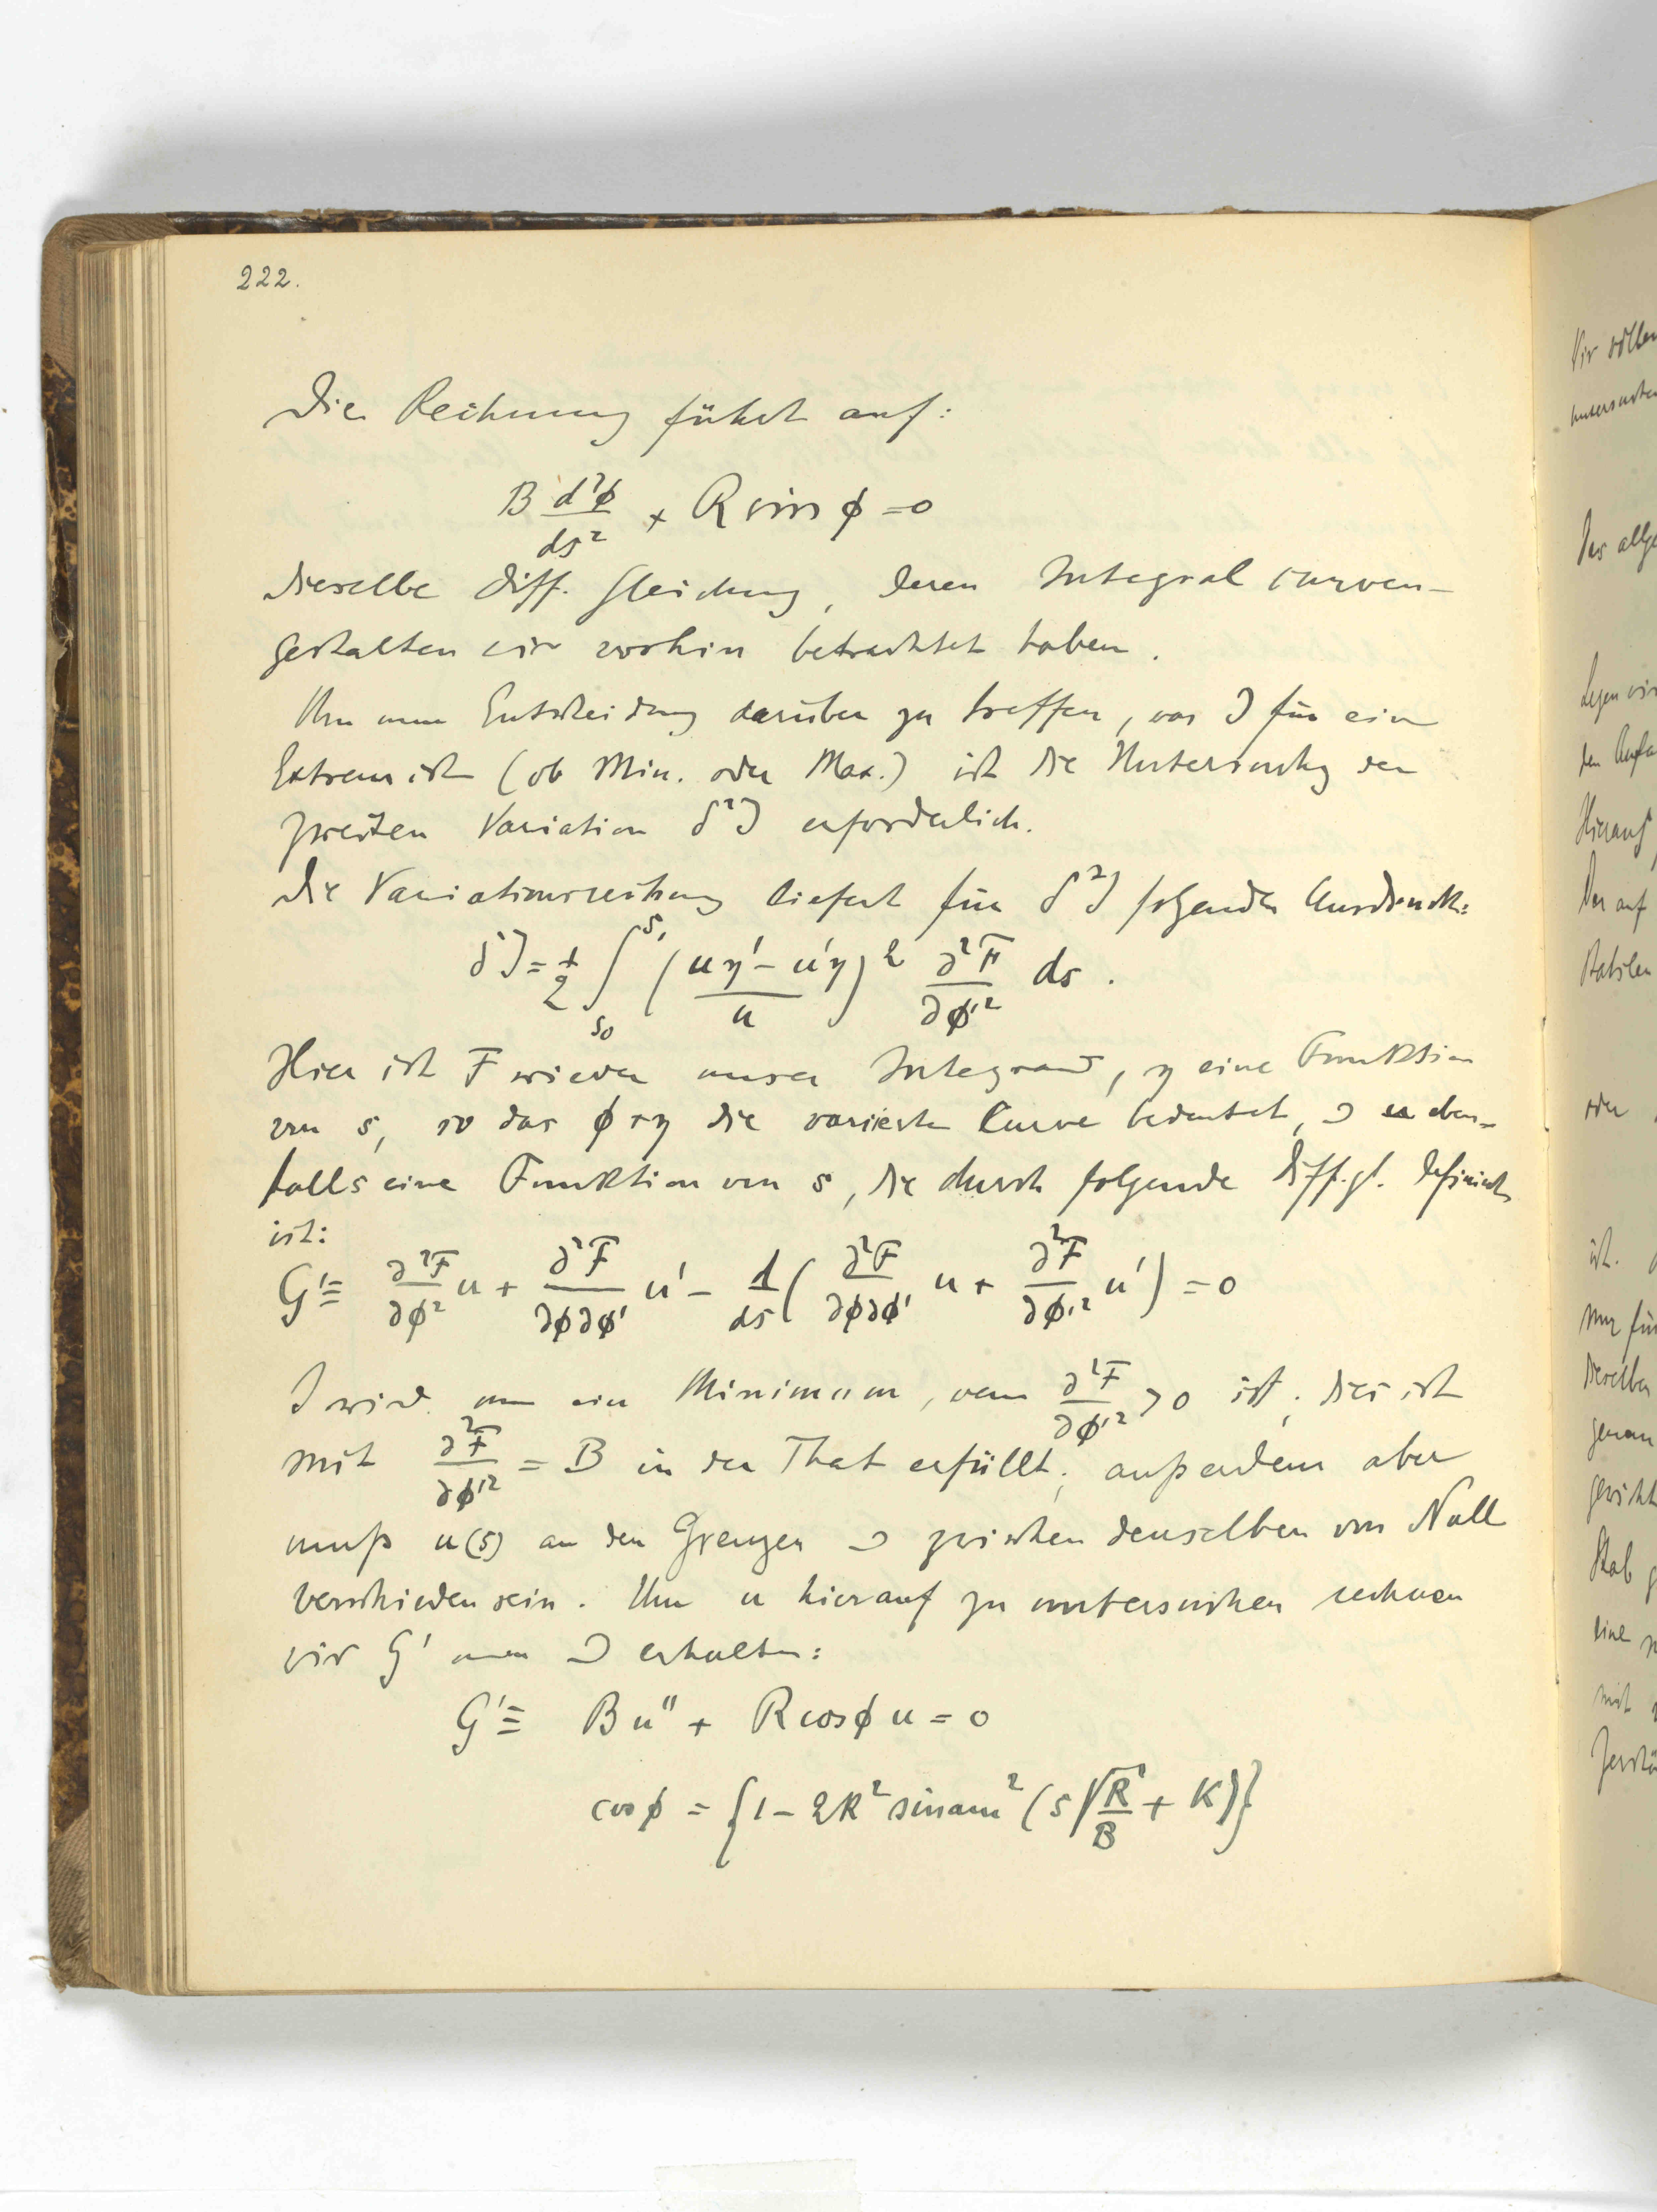 222.
Die Rechnung führt auf:
B d²ϕ/ds² + R sin ϕ = 0
dieselbe Diff. Gleichung, deren Integralcurven-
gestalten wir vorhin betrachtet haben.
Um nun Entscheidung darüber zu treffen, was J für ein
Extrem ist (ob Min. oder Max.) ist die Untersuchg der
zweiten Variation δ²J erforderlich.
Die Variationsrechnung liefert für δ²J folgenden Ausdruck:
δ²J = 1/2 ∫_{s₀}^{s₁} ((uη' − u'η)/u)² ∂²F/∂ϕ'² ds.
Hier ist F wieder unser Integrand, η eine Funktion
von s, so das ϕ+η die variierte Curve bedeutet, u eben-
falls eine Funktion von s, die durch folgende Diff.gl. definiert
ist:
G' ≡ ∂²F/∂ϕ² u + ∂²F/∂ϕ∂ϕ' u' − d/ds (∂²F/∂ϕ∂ϕ' u + ∂²F/∂ϕ'² u') = 0
J wird nun ein Minimum, wenn ∂²F/∂ϕ'² > 0 ist; dies ist
mit ∂²F/∂ϕ'² = B in der That erfüllt; außerdem aber
muß u(s) an den Grenzen & zwischen denselben von Null
verschieden sein. Um u hierauf zu untersuchen rechnen
wir G' aus & erhalten:
G' ≡ Bu'' + R cos ϕ u = 0
cos ϕ = {1 − 2k² sinam² (s √(R/B) + K)}
Wir
Das
Legen wir
den
Hierauf
Der auf
oder
ist.
nur für
dieselben
genau
Stab
eine
mit